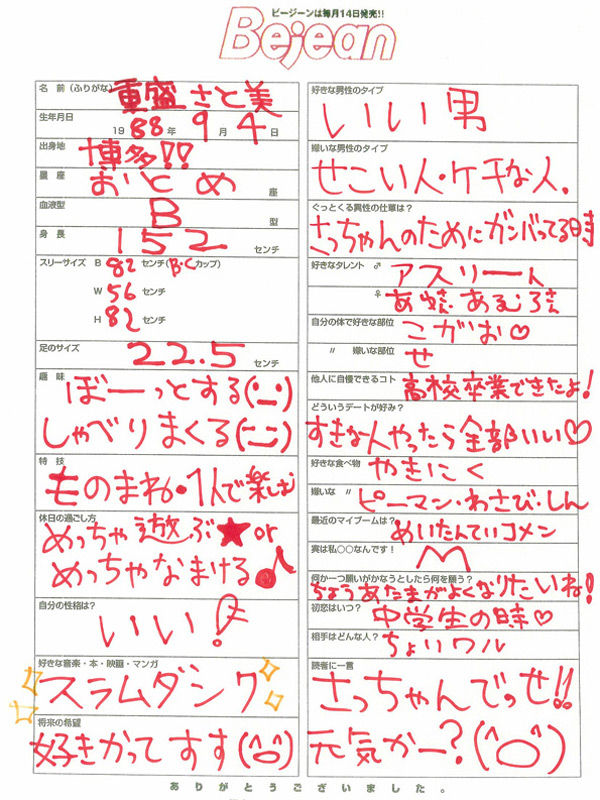 ビージーンは毎月14日発売!!
Bejean
名 前(ふりがな) 重盛さと美
生年月日 1988年 9月 4日
出身地 博多!!
星 座 おとめ 座
血液型 B 型
身 長 152 センチ
スリーサイズ B 82 センチ(B・Cカップ)
W 56 センチ
H 82 センチ
足のサイズ 22.5 センチ
趣 味 ぼーっとする(・_・)
しゃべりまくる(・ー・)
特 技
ものまね・1人で楽しむ
休日の過ごし方
めっちゃ遊ぶ★or
めっちゃなまける♪
自分の性格は?
いい!
好きな音楽・本・映画・マンガ
スラムダンク
将来の希望
好きかってすす(^o^)
好きな男性のタイプ
いい男
嫌いな男性のタイプ
せこい人・ケチな人.
ぐっとくる異性の仕草は?
さっちゃんのためにガンバってる時
好きなタレント ♂ アスリート
♀ あむろさん
自分の体で好きな部位 こがお♡
〃 嫌いな部位 せ
他人に自慢できるコト 高校卒業できたよ!
どういうデートが好み?
すきな人やったら全部いい♡
好きな食べ物 やきにく
嫌いな 〃 ピーマン・わさび・しん
最近のマイブームは? めいたんていコメン
実は私○○なんです! M
何か一つ願いがかなうとしたら何を願う?
ちょうあたまがよくなりたいね!
初恋はいつ? 中学生の時♡
相手はどんな人? ちょいワル
読者に一言
さっちゃんでっせ!!
元気かー?(^o^)
ありがとうございました。